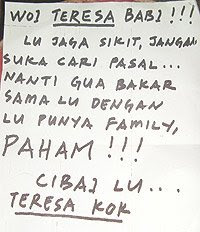 WOI TERESA BABI !!!
LU JAGA SIKIT, JANGAN
SUKA CARI PASAL...
NANTI GUA BAKAR
SAMA LU DENGAN
LU PUNYA FAMILY,
PAHAM !!!
CIBAI LU...
TERESA KOK